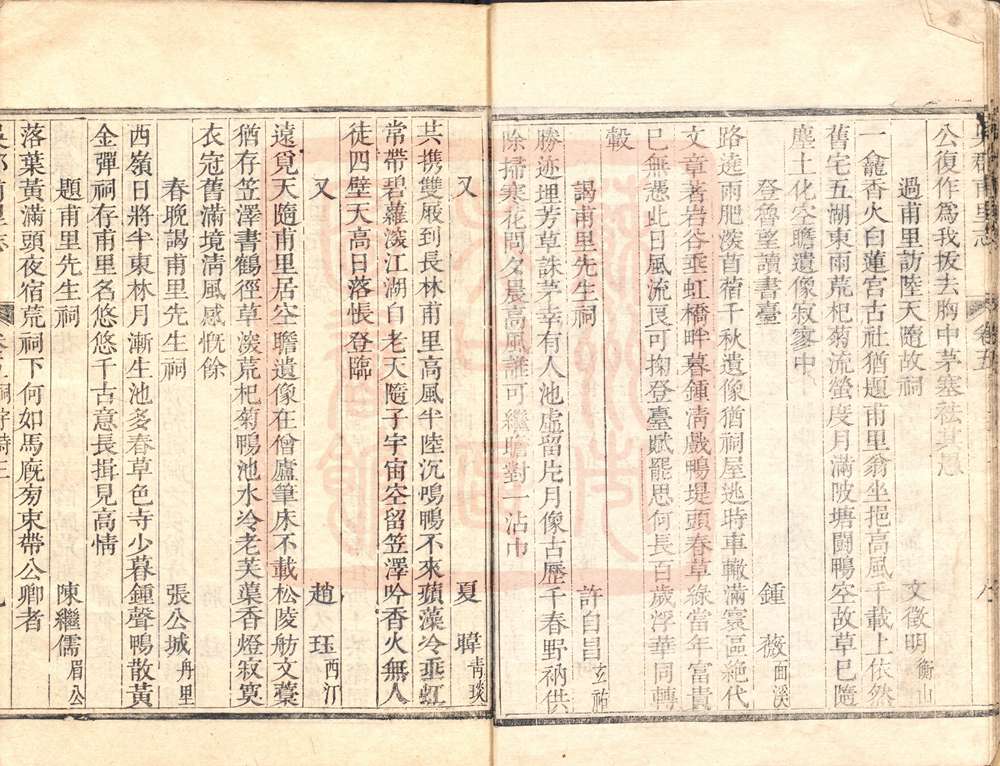 吳郡甫里志 卷五 八
公復作爲我拔去胸中茅塞祛其愚
過甫里訪陸天隨故祠 文徵明衡山
一龕香火白蓮宮古社猶題甫里翁坐挹高風千載上依然
舊宅五湖東雨荒杞菊流螢度月滿陂塘鬪鴨空故草已隨
塵土化空瞻遺像寂寥中
登魯望讀書臺 鍾薇面溪
路遶雨肥淡苜蓿千秋遺像猶祠屋逃時車轍滿寰區絶代
文章著岩谷垂虹橋畔暮鍾淸戲鴨堤頭春草綠當年富貴
已無憑此日風流良可掬登臺賦罷思何長百歲浮華同轉
轂
謁甫里先生祠 許自昌玄祐
勝迹埋芳草誅茅幸有人池虛留片月像古歷千春野衲供
除掃寒花問夕晨高風誰可繼瞻對一沾巾
又 夏暐靑琰
共携雙屐到長林甫里高風半陸沉鳴鴨不來蘋藻冷垂虹
常帶碧蘿深江湖白老天隨子宇宙空留笠澤吟香火無人
徒四壁天高日落悵登臨
又 趙珏西汀
遠覓天隨甫里居空瞻遺像在僧廬筆床不載松陵舫文藁
猶存笠澤書鶴徑草深荒杞菊鴨池水冷老芙蕖香燈寂寞
衣冠舊滿境淸風感慨餘
春晚謁甫里先生祠 張公城丹里
西嶺日將半東林月漸生池多春草色寺少暮鍾聲鴨散黃
金彈祠存甫里名悠悠千古意長揖見高情
題甫里先生祠 陳繼儒眉公
落葉黃滿頭夜宿荒祠下何如馬廐旁束帶公卿者